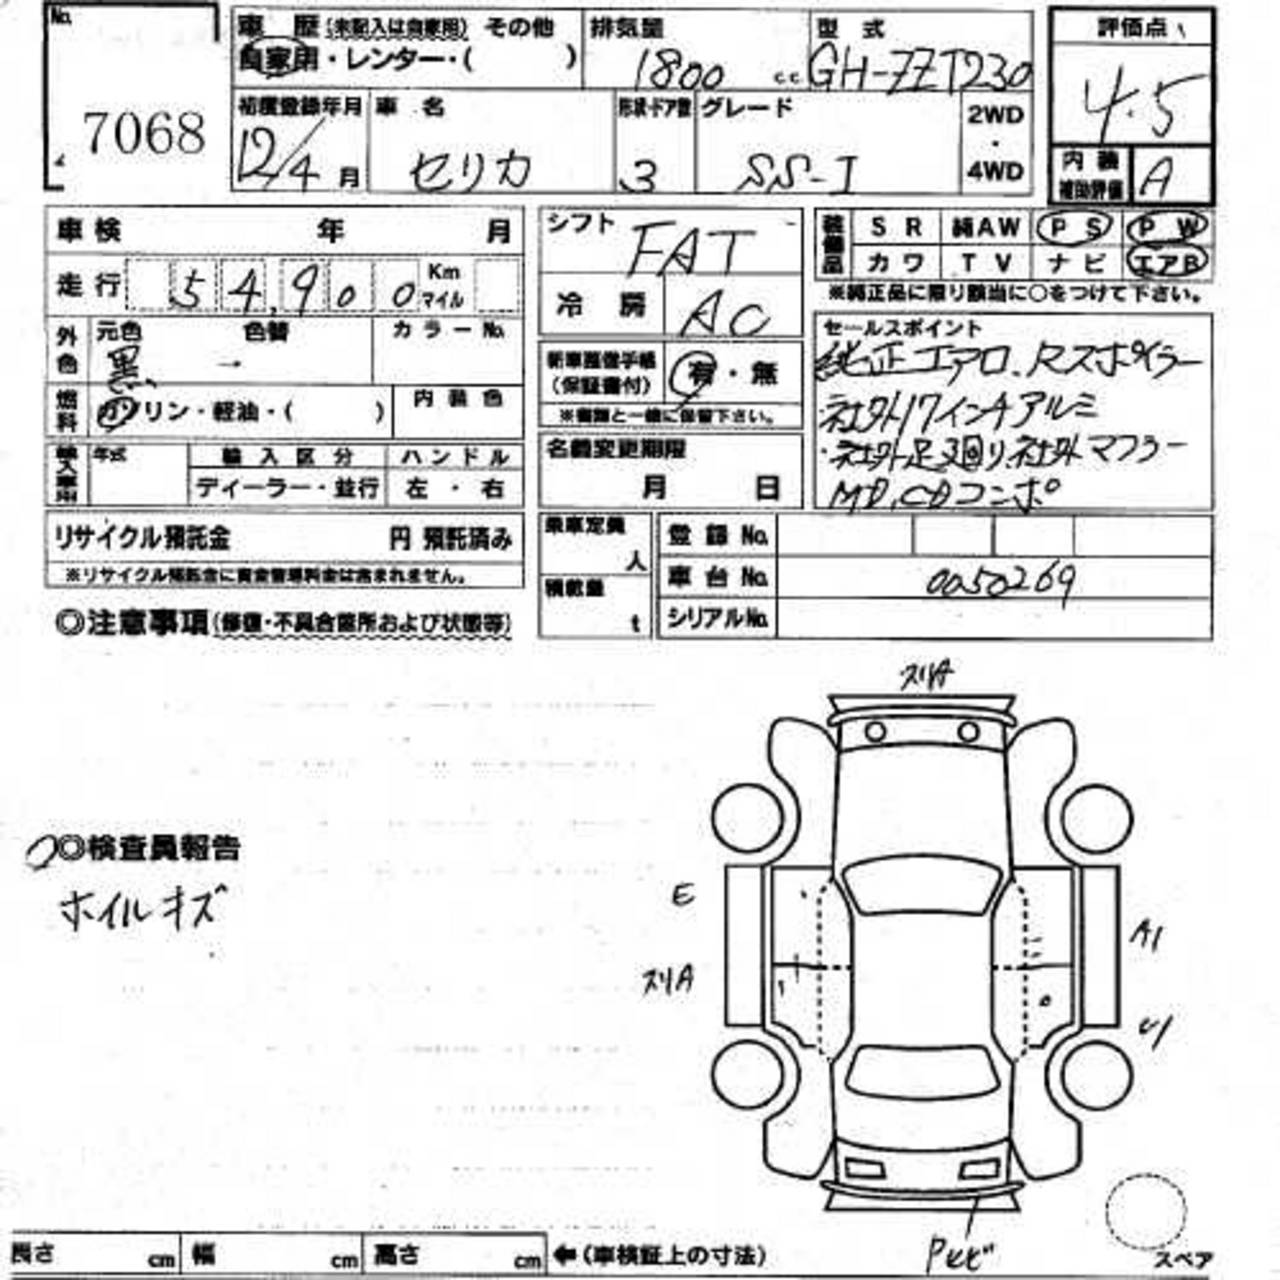 No.
7068
車歴(未記入は自家用) その他
自家用・レンター・( )
排気量
1800 cc
型式
GH-ZZT230
評価点
4.5
内装補助評価 A
初度登録年月
12/4月
車名
セリカ
形状・ドア数
3
グレード
SS-I
2WD
・
4WD
車検 年 月
走行 54,900 Km マイル
外色 元色 黒 色替 → カラーNo.
燃料 ガソリン・軽油・( ) 内装色
輸入車用 年式 輸入区分 ハンドル
ディーラー・並行 左・右
リサイクル預託金 円 預託済み
※リサイクル預託金に資金管理料金は含まれません。
シフト FAT
冷房 AC
新車整備手帳(保証書付) 有・無
※書類と一緒に保管下さい。
名義変更期限
月 日
乗車定員 人
積載量 t
装備品 SR 純AW PS PW
カワ TV ナビ エアB
※純正品に限り該当に○をつけて下さい。
セールスポイント
純正エアロ、Rスポイラー
社外17インチアルミ
・社外足廻り、社外マフラー
MD,CDコンポ
登録No.
車台No. 0050269
シリアルNo.
◎注意事項(修復・不具合箇所および状態等)
◎検査員報告
ホイルキズ
スリA
E
スリA
A1
U1
Pセビ
スペア
長さ cm 幅 cm 高さ cm ←(車検証上の寸法)